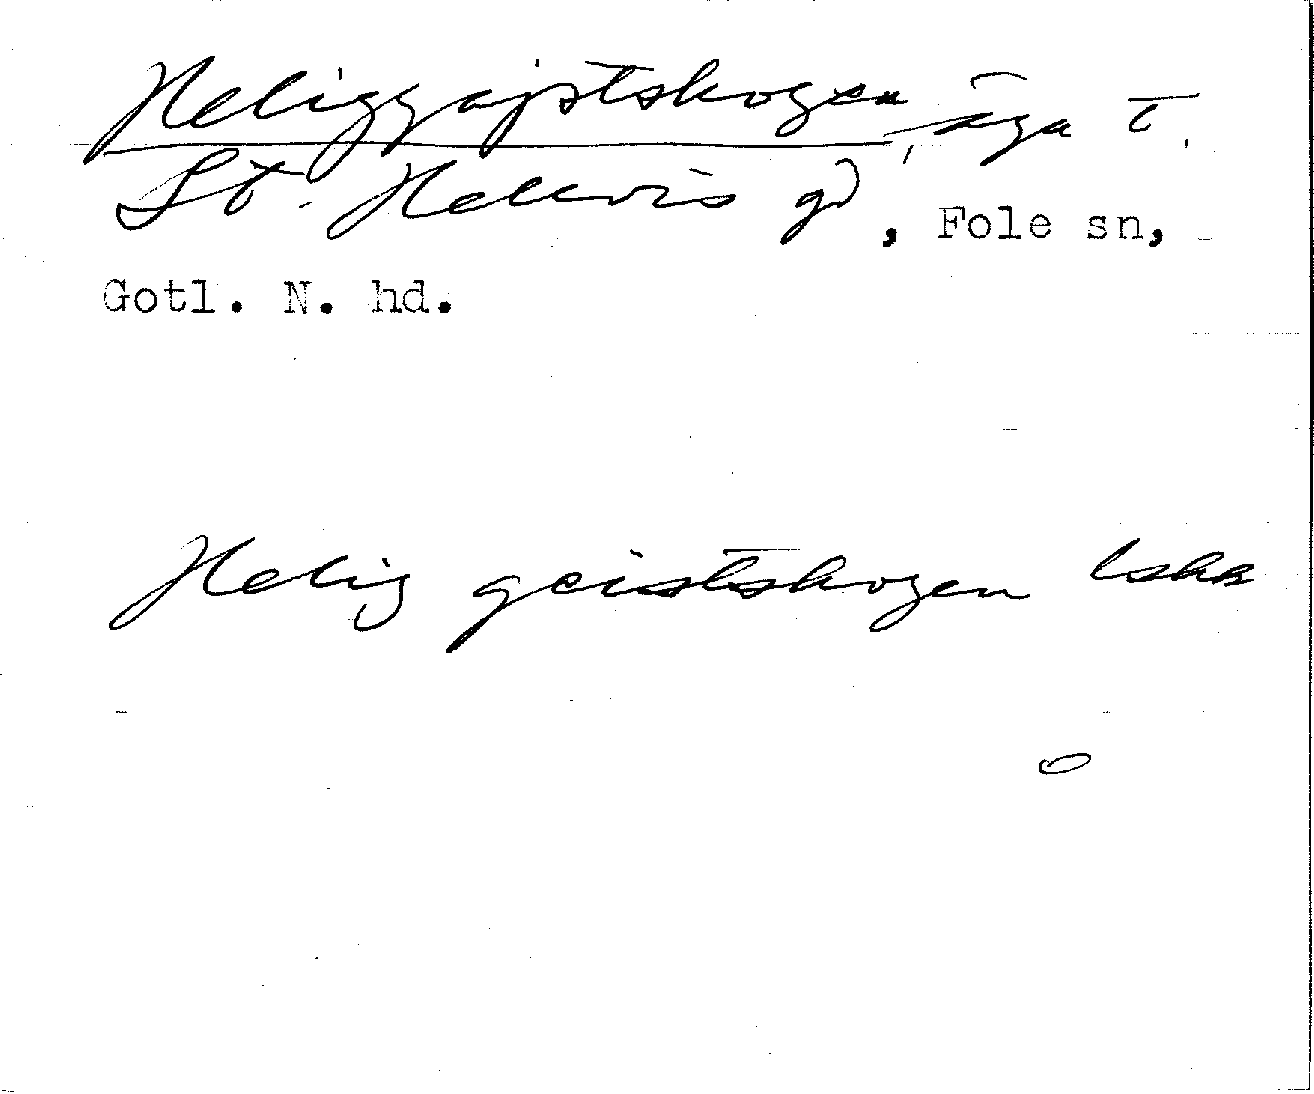 Heliggajstskogen, äga t.
St. Hellvis gd, Fole sn,
Gotl. N. hd.
Helig geistskogen lskB